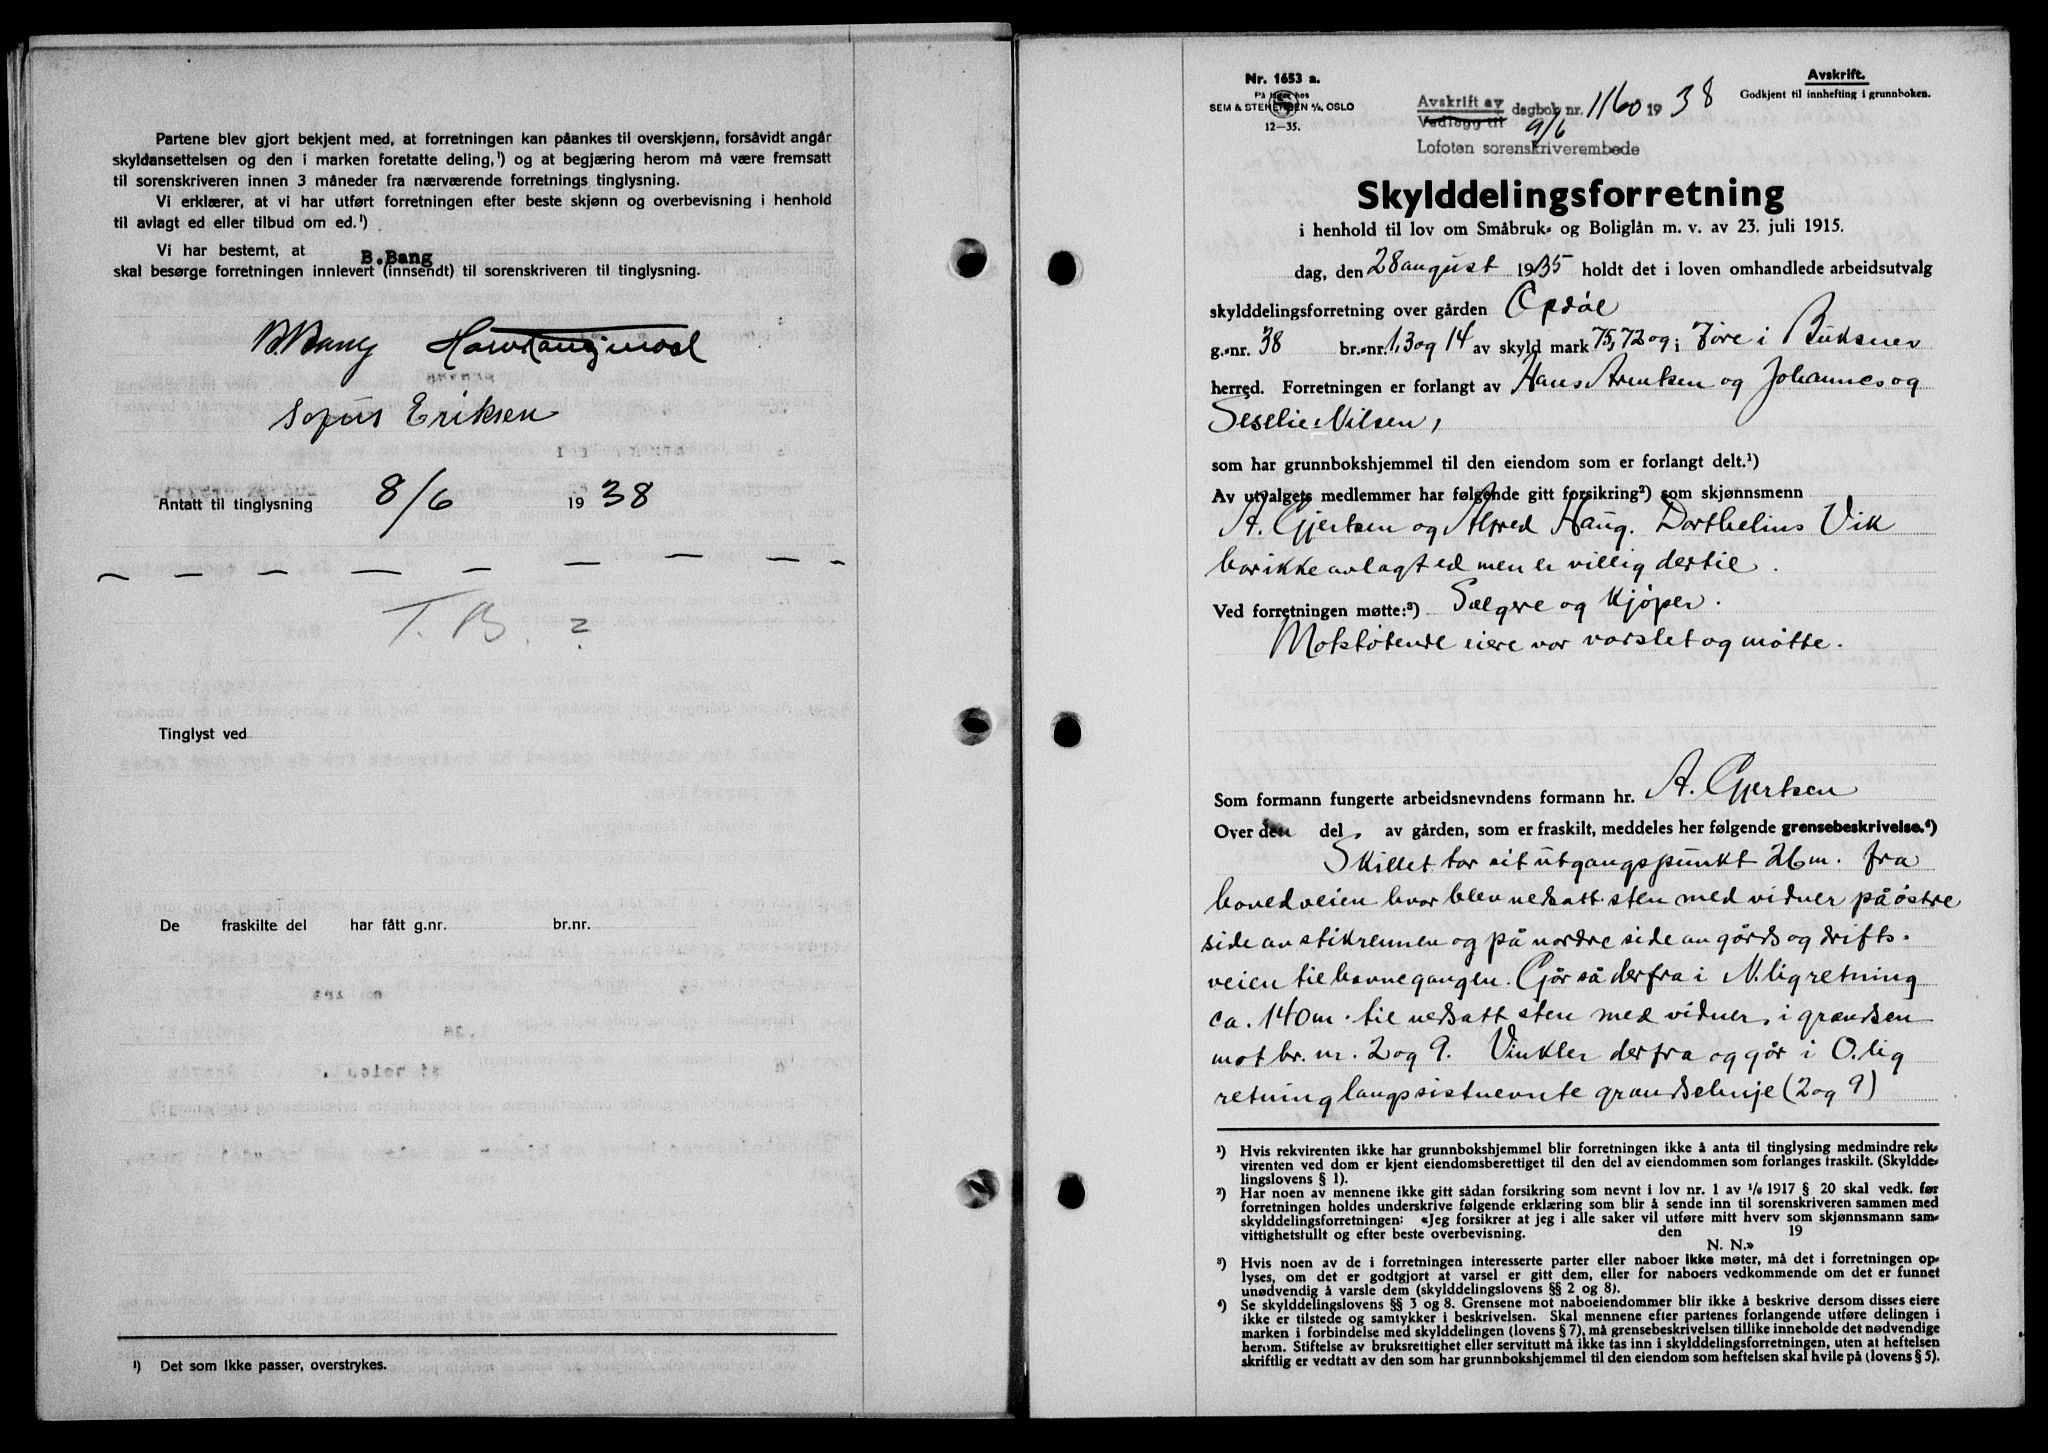 Partene blev gjort bekjent med, at forretningen kan påankes til overskjønn, forsåvidt angår
skyldansettelsen og den i marken foretatte deling,¹) og at begjæring herom må være fremsatt
til sorenskriveren innen 3 måneder fra nærværende forretnings tinglysning.
Vi erklærer, at vi har utført forretningen efter beste skjønn og overbevisning i henhold
til avlagt ed eller tilbud om ed.¹)
Vi har bestemt, at B.Bang
skal besørge forretningen innlevert (innsendt) til sorenskriveren til tinglysning.
B.Bang
Sofus Eriksen
Antatt til tinglysning 8/6 1938
T. B. ?
Tinglyst ved
De fraskilte del har fått g.nr. br.nr.
¹) Det som ikke passer, overstrykes.
Nr. 1653 a.
På lager hos
SEM & STENERSEN A/S, OSLO
12—35.
Avskrift.
Godkjent til innhefting i grunnboken.
Avskrift av
Vedlegg til
dagbok nr. 1160 1938
9/6
Lofoten sorenskriverembede
Skylddelingsforretning
i henhold til lov om Småbruk- og Boliglån m. v. av 23. juli 1915.
dag, den 28 august 1935 holdt det i loven omhandlede arbeidsutvalg
skylddelingsforretning over gården Opdøl
g.-nr. 38 br.-nr. 1,3 og 14 av skyld mark 75,72 og i Øre i Buksnes
herred. Forretningen er forlangt av Hans Arentsen og Johannes og
Seselie Nilsen,
som har grunnbokshjemmel til den eiendom som er forlangt delt.¹)
Av utvalgets medlemmer har følgende gitt forsikring²) som skjønnsmenn
A. Gjertsen og Alfred Haug. Dorthelius Vik
har ikke avlagt ed men er villig dertil.
Ved forretningen møtte:³) Sælgere og Kjøper.
Motstøtende eiere var varslet og møtte.
Som formann fungerte arbeidsnevndens formann hr. A. Gjertsen
Over den del. av gården, som er fraskilt, meddeles her følgende grensebeskrivelse.⁴)
Skillet tar sit utgangspunkt 26 m. fra
hovedveien hvor blev nedsatt sten med vidner på østre
side av stikrennen og på nordre side av gårds og drifts-
veien til havnegangen. Går så derfra i N.lig retning
ca. 140 m. til nedsatt sten med vidner, i grændsen
mot br. nr. 2 og 9. Vinkler derfra og går i O.lig
retning langs sistnevnte grændselinje (2 og 9)
¹) Hvis rekvirenten ikke har grunnbokshjemmel blir forretningen ikke å anta til tinglysing medmindre rek-
virenten ved dom er kjent eiendomsberettiget til den del av eiendommen som forlanges fraskilt. (Skyldde-
lingslovens § 1).
²) Har noen av mennene ikke gitt sådan forsikring som nevnt i lov nr. 1 av 1/6 1917 § 20 skal vedk. før
forretningen holdes underskrive følgende erklæring som blir å sende inn til sorenskriveren sammen med
skylddelingsforretningen: «Jeg forsikrer at jeg i alle saker vil utføre mitt hverv som skjønnsmann sam-
vittighetsfullt og efter beste overbevisning. den 19
N. N.»
³) Hvis noen av de i forretningen interesserte parter eller naboer ikke møter, må det i forretningen op-
lyses, om det er godtgjort at varsel er gitt dem, eller for naboers vedkommende om det er funnet
unødvendig å varsle dem (skylddelingslovens §§ 2 og 8).
⁴) Se skylddelingslovens §§ 3 og 8. Grensene mot naboeiendommer blir ikke å beskrive dersom disses eiere
ikke er tilstede og samtykker i beskrivelsen. Skal mennene efter partenes forlangende utføre delingen i
marken i forbindelse med skylddelingen (lovens § 7), må grensebeskrivelsen tillike inneholde det nødvendige
herom. Stiftelse av bruksrettighet eller servitutt må ikke tas inn i skylddelingsforretningen, uten at heftelsen
skriftlig er vedtatt av den som har grunnbokshjemmel til den eiendom som heftelsen skal hvile på (lovens § 5).